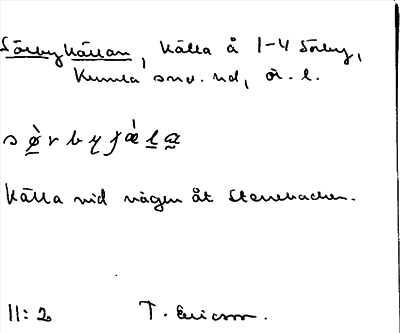 Sörbykällan, källa å 1-4 Sörby,
Kumla snv. ud, ör. l.
s ø̀ r b y ʃ æ̀ l a
Källa vid vägen åt Stenebacken.
11:2 T. Ericsson.